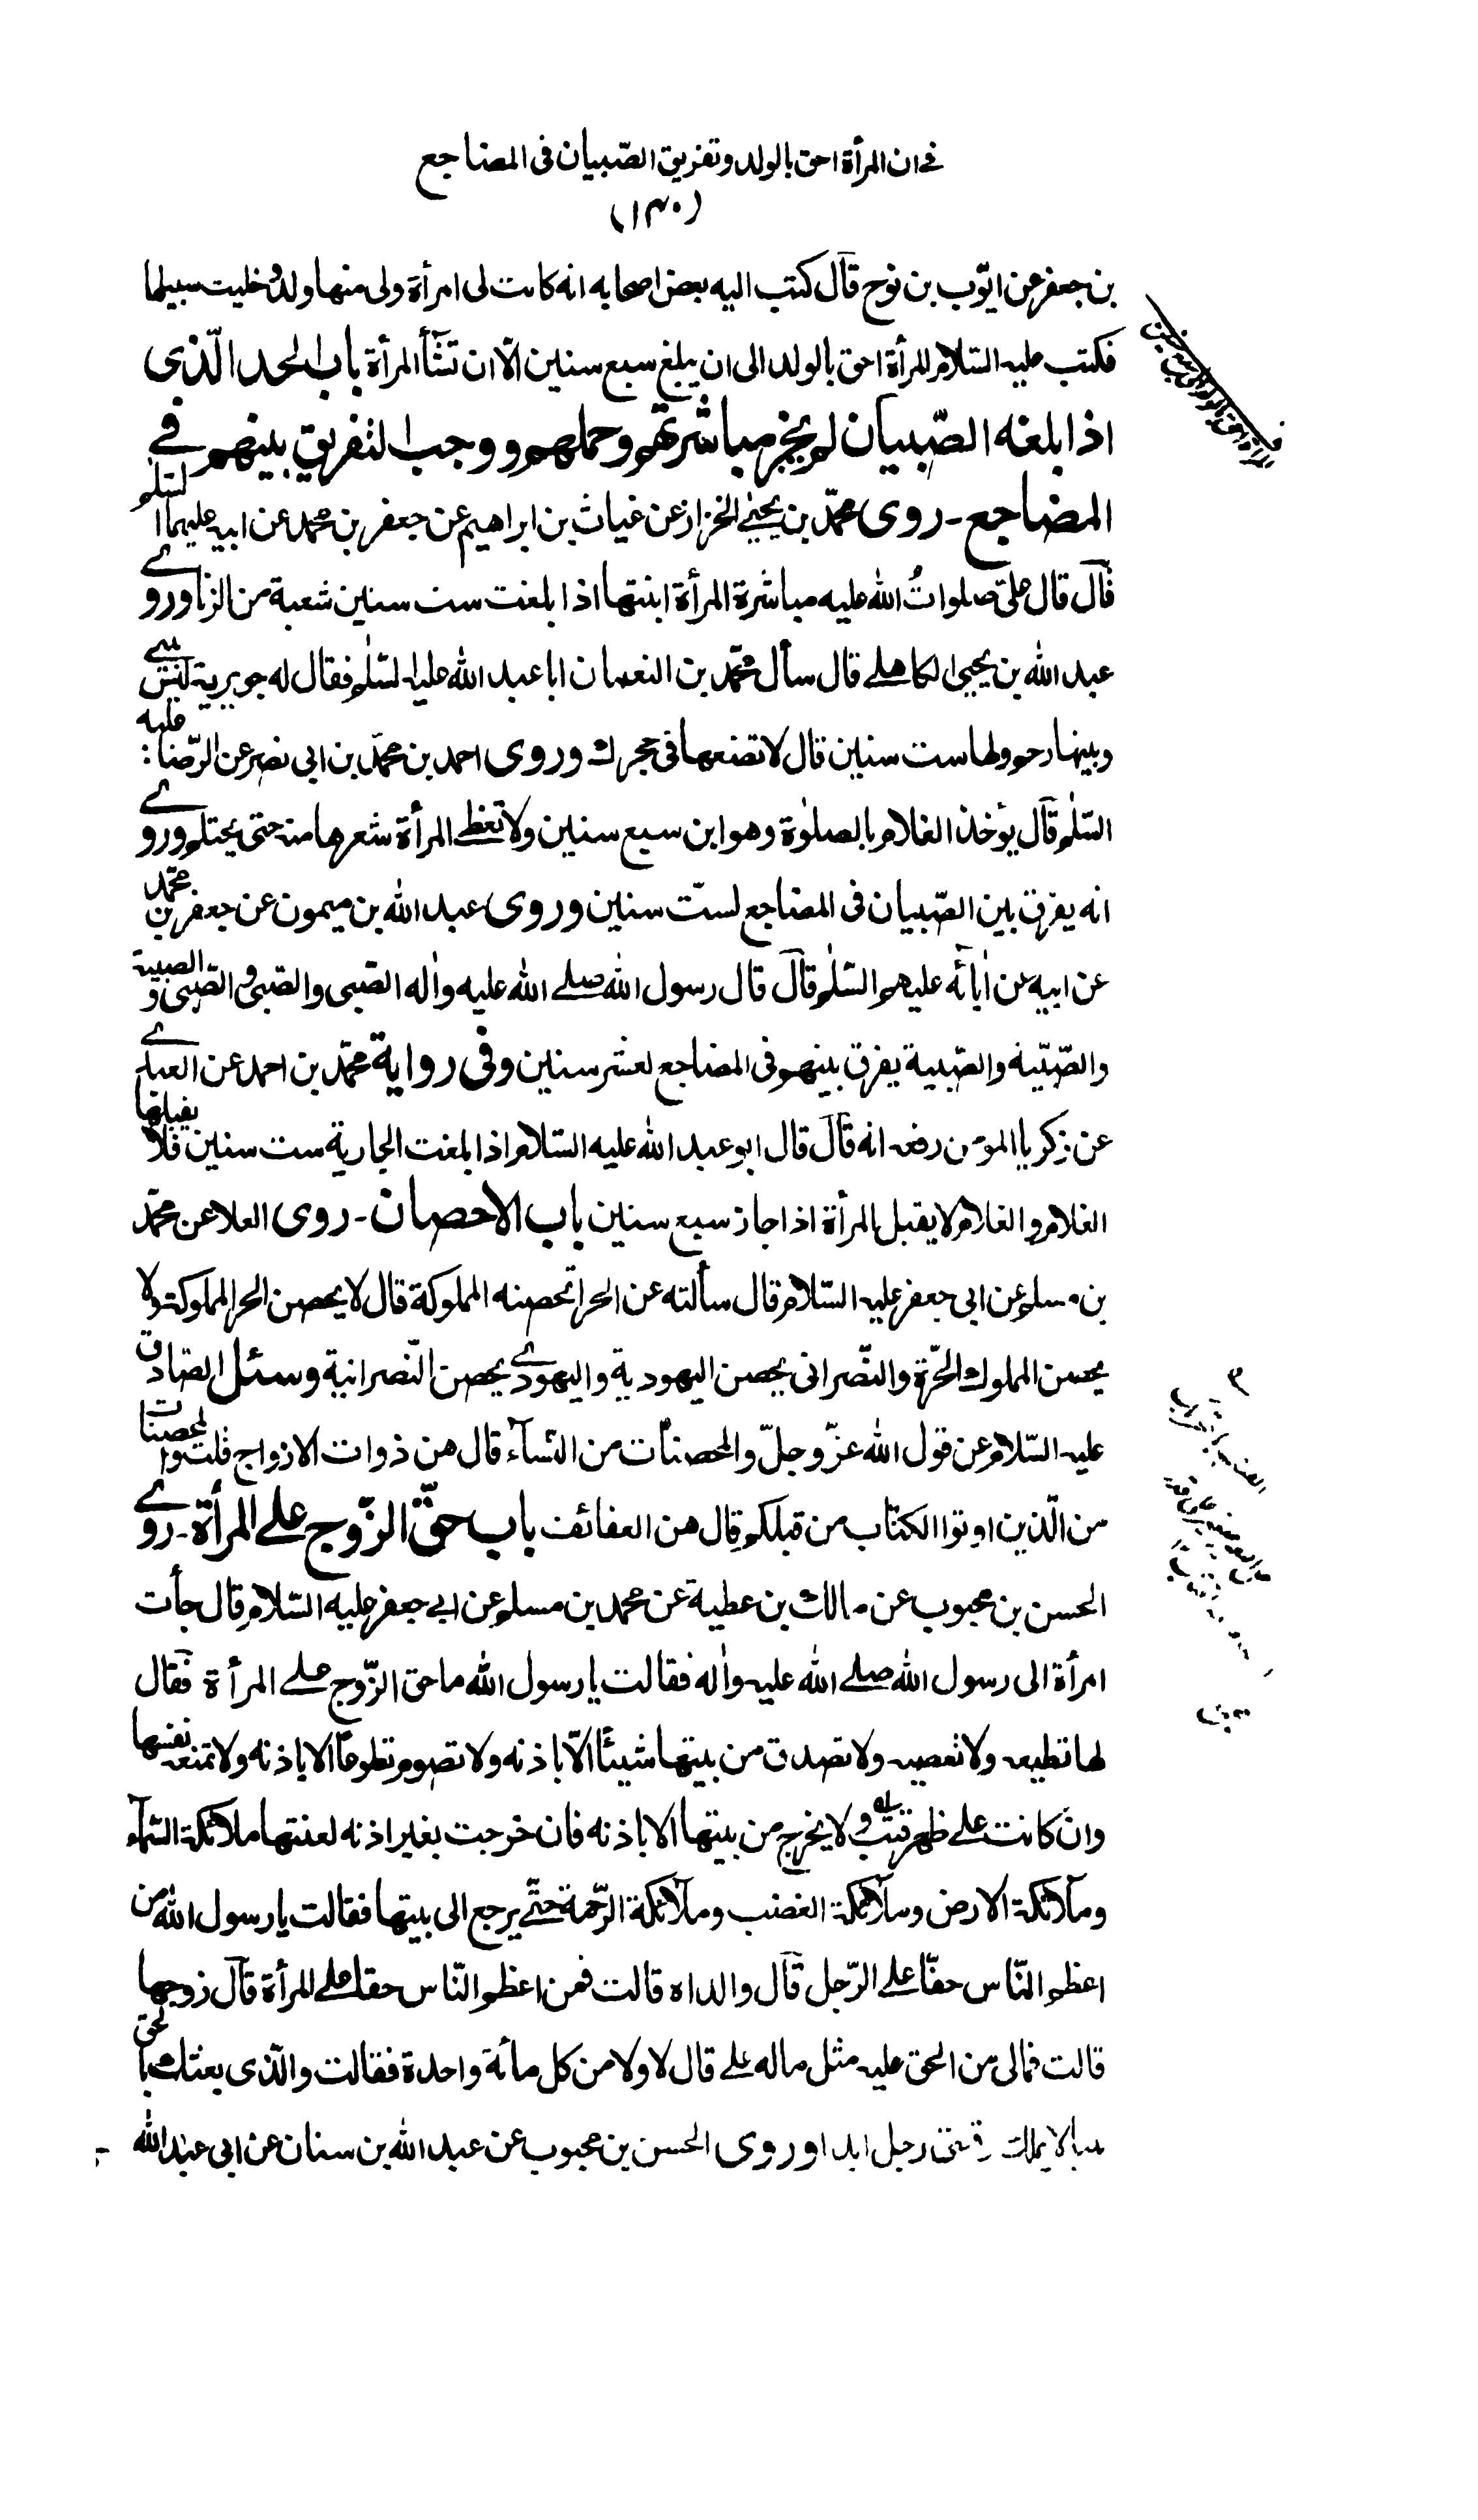 فى ان المرأة احق بالولد وتفريق الصّبيان فى المضاجع
(١٣٠)
بن جعفر عن ايّوب بن نوح قآل كتب اليه بعض اصحابه انه كانت لى امرأة ولى منها ولدٌ خليت سبيلها
فكتب عليه السّلام المرأة احق بالولد الى ان يبلغ سبع سنين الّا ان تشأ المرأة باب الحد الّذى
اذا بلغه الصّبيان لم يجز مباشرتهم وحملهم ووجب التفريق بينهم فے
المضاجع ـ روى محمّد بن يحيىٰ الخزاز عن غياث بن ابراهيم عن جعفر بن محمد عن ابيه عليهما السّلم
قآل قال علىّ صلوات الله عليه مباشرة المرأة ابنتها اذا بلغت ست سنين شعبة من الزنا وروے
عبد الله بن يحيى الكاهلے قال سأل محمّد بن النعمان ابا عبد الله عليه السّلٰم فقال له جويرية ليس بينے
وبينها رحم ولها ست سنين قال لا تضعها فى حجرك وروى احمد بن محمّد بن ابى نصر عن الرّضا عليه
السّلٰم قآل يؤخذ الغلام بالصلوٰة وهو ابن سبع سنين ولا تغطے المرأة شعرها منه حتى يحتلم وروے
انه يفرق بين الصّبيان فى المضاجع لستّ سنين وروى عبد الله بن ميمون عن جعفر بن محمّد
عن ابيه عن اٰبائه عليهم السّلٰم قآل قال رسول الله صلے الله عليه واٰله الصّبى والصّبى و الصّبى و الصبية
والصّبيّة والصّبية يفرق بينهم فى المضاجع لعشر سنين وفى رواية محمّد بن احمد عن العبيدے
عن زكريا المؤمن رفعه انه قآل قال ابو عبد الله عليه السّلام اذا بلغت الجارية ست سنين فلا يقبلها
الغلام و الغلام لا يقبل المرأة اذا جاز سبع سنين باب الاحصان ـ روى العلا عن محمّد
بن مسلم عن ابى جعفر عليه السّلام قال سألته عن الحر اتحصنه المملوكة قال لا يحصن الحر المملوكة ولا
يحصن المملوك الحرّة والنّصرانى يحصن اليهودية واليهودے يحصن النّصرانية وسئل الصّادق
عليه السّلام عن قول الله عزّ وجلّ والمحصنات من النّسآء قال هن ذوات الازواج قلت والمحصنات
من الّذين اوتوا الكتاب من قبلكم قال هن العفائف باب حقّ الزّوج علے المرأة ـ روے
الحسن بن محبوب عن مالك بن عطية عن محمد بن مسلم عن ابے جعفر عليه السّلام قال جأت
امرأة الى رسول الله صلے الله عليه واٰله فقالت يا رسول الله ما حق الزّوج علے المرأة فقآل
لها تطيعه ولا تعصيه ولا تصدق من بيتها شيئا الّا باذنه ولا تصوم تطوعًا الا باذنه ولا تمنعه نفسها
وان كانت علے ظهر قتب و لا يخرج من بيتها الا باذنه فان خرجت بغير اذنه لعنتها ملائكة السّمآء
وملآئكة الارض وملآئكة الغضب وملآئكة الرّحمة حتّے يرجع الى بيتها فقالت يا رسول الله من
اعظم النّاس حقّا علے الرّجل قآل والداه قالت فمن اعظم النّاس حقا علے المرأة قآل زوجها
قالت فمالى من الحق عليه مثل ماله علے قال لا ولا من كل مائة واحدة فقالت والّذى بعثك بالحق
رجل ابدا وروى الحسن بن محبوب عن عبد الله بن سنان عن ابى عبد الله